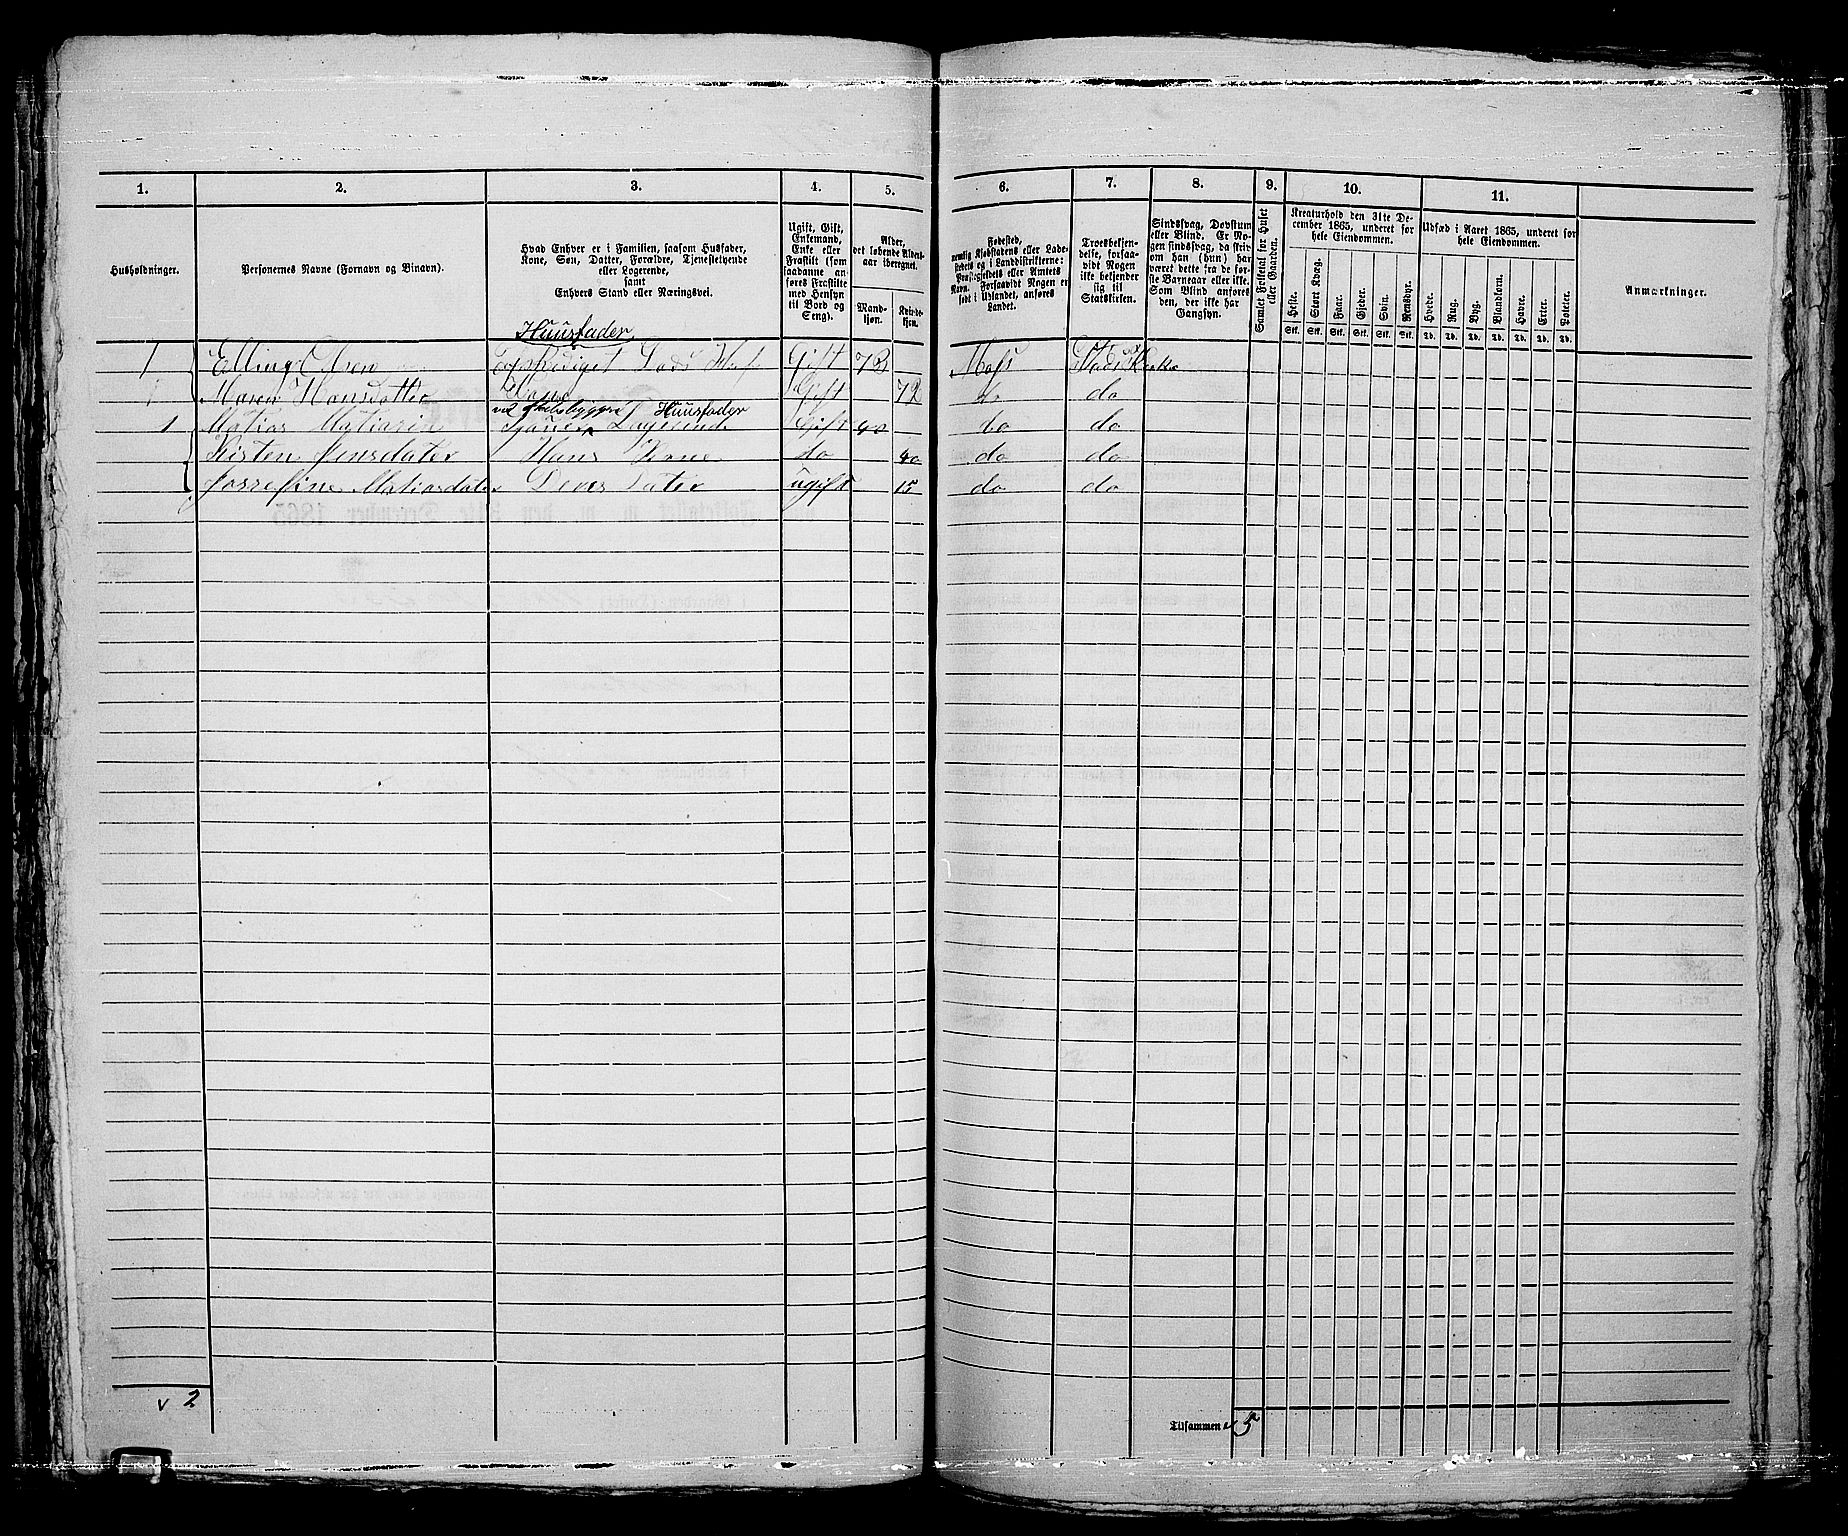 1. 2. 3. 4. 5. 6. 7. 8. 9. 10. 11.
Husholdninger.
Personernes Navne (Fornavn og Binavn).
Hvad Enhver er i Familien, saasom Husfader,
Kone, Søn, Datter, Forældre, Tjenestetyende
eller Logerende,
samt
Enhvers Stand eller Næringsvei.
Ugift, Gift,
Enkemand,
Enke eller
Fraskilt (som
saadanne an-
føres Fraskilte
med Hensyn
til Bord og
Seng).
Alder,
det løbende Alders-
aar iberegnet.
Mand-
kjøn.
Kvinde-
kjøn.
Fødested,
nemlig Kjøbstadens eller Lade-
stedets og i Landdistrikterne:
Præstegjeldets eller Amtets
Navn. Forsaavidt Nogen er
født i Udlandet, anføres
Landet.
Troesbekjen-
delse, forsaa-
vidt Nogen
ikke bekjender
sig til
Statskirken.
Sindssvag, Døvstum
eller Blind. Er No-
gen sindssvag, da skriv
om han (hun) har
været dette fra de før-
ste Barneaar eller ikke.
Som Blind anføres
den, der ikke har
Gangsyn.
Samlet Folketal for Huset
eller Gaarden.
Kreaturhold den 31te De-
cember 1865, underet for
hele Eiendommen.
Heste. Stort Kvæg. Faar. Gjeder. Svin. Rensdyr.
Stk. Stk. Stk. Stk. Stk. Stk.
Udsæd i Aaret 1865, underet for
hele Eiendommen.
Hvede. Rug. Byg. Blandkorn. Havre. Erter. Poteter.
Td. Td. Td. Td. Td. Td. Td.
Anmærkninger.
Huusfader
1 Elling Olsen Gift 73 Moss
Maren Hansdatter Kone Gift 72 do do
Huusfader
1 Matias Gift 40 do do
Kisten Jensdater Hans Kone do 40 do do
Josrefine Matiasdater Deres Dater ugift 15 do do
v 2
Tilsammen v 5